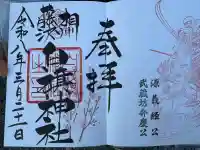 奉拝
相州藤沢
白旗神社
令和八年三月二十一日
源義経公
武蔵坊弁慶公